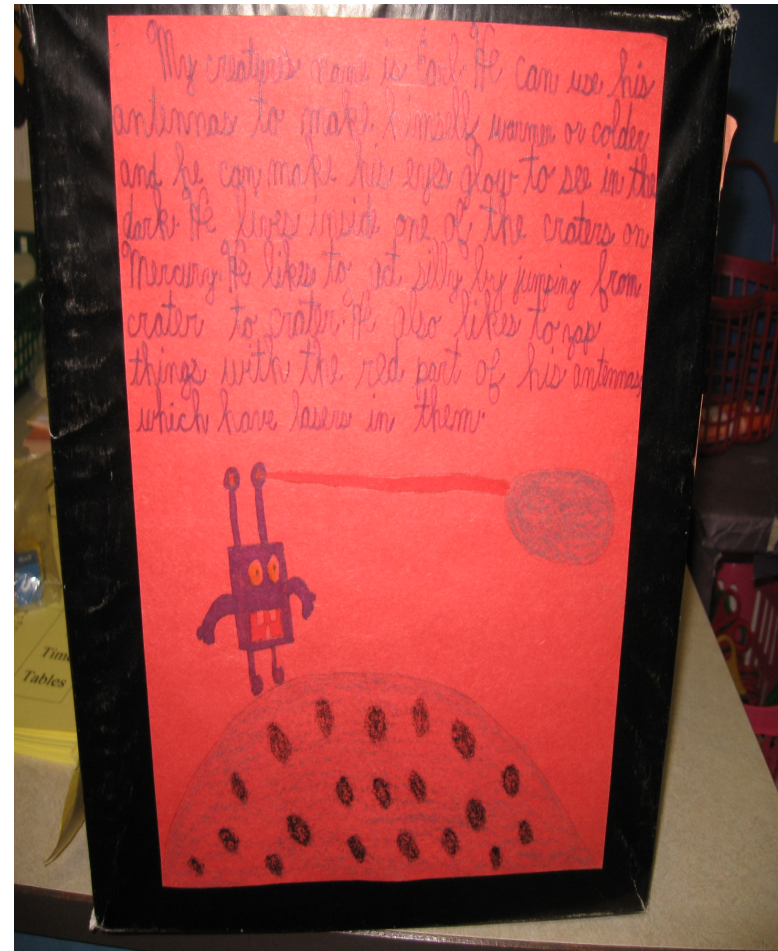 My creature's name is Earl. He can use his
antennas to make himself warmer or colder
and he can make his eyes glow to see in the
dark. He lives inside one of the craters on
Mercury. He likes to act silly by jumping from
crater to crater. He also likes to zap
things with the red part of his antennas,
which have lasers in them.
Tables